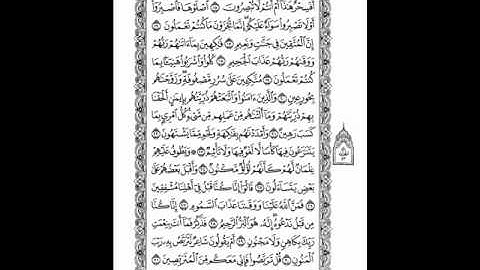 أَفَسِحْرٌ هَٰذَا أَمْ أَنتُمْ لَا تُبْصِرُونَ ١٥ اصْلَوْهَا فَاصْبِرُوا
أَوْ لَا تَصْبِرُوا سَوَاءٌ عَلَيْكُمْ إِنَّمَا تُجْزَوْنَ مَا كُنتُمْ تَعْمَلُونَ ١٦
إِنَّ الْمُتَّقِينَ فِي جَنَّاتٍ وَنَعِيمٍ ١٧ فَاكِهِينَ بِمَا آتَاهُمْ رَبُّهُمْ
وَوَقَاهُمْ رَبُّهُمْ عَذَابَ الْجَحِيمِ ١٨ كُلُوا وَاشْرَبُوا هَنِيئًا بِمَا
كُنتُمْ تَعْمَلُونَ ١٩ مُتَّكِئِينَ عَلَىٰ سُرُرٍ مَّصْفُوفَةٍ وَزَوَّجْنَاهُم
بِحُورٍ عِينٍ ٢٠ وَالَّذِينَ آمَنُوا وَاتَّبَعَتْهُمْ ذُرِّيَّتُهُم بِإِيمَانٍ أَلْحَقْنَا
بِهِمْ ذُرِّيَّتَهُمْ وَمَا أَلَتْنَاهُم مِّنْ عَمَلِهِم مِّن شَيْءٍ كُلُّ امْرِئٍ بِمَا
كَسَبَ رَهِينٌ ٢١ وَأَمْدَدْنَاهُم بِفَاكِهَةٍ وَلَحْمٍ مِّمَّا يَشْتَهُونَ ٢٢
يَتَنَازَعُونَ فِيهَا كَأْسًا لَّا لَغْوٌ فِيهَا وَلَا تَأْثِيمٌ ٢٣ وَيَطُوفُ عَلَيْهِمْ
غِلْمَانٌ لَّهُمْ كَأَنَّهُمْ لُؤْلُؤٌ مَّكْنُونٌ ٢٤ وَأَقْبَلَ بَعْضُهُمْ عَلَىٰ
بَعْضٍ يَتَسَاءَلُونَ ٢٥ قَالُوا إِنَّا كُنَّا قَبْلُ فِي أَهْلِنَا مُشْفِقِينَ
٢٦ فَمَنَّ اللَّهُ عَلَيْنَا وَوَقَانَا عَذَابَ السَّمُومِ ٢٧ إِنَّا كُنَّا
مِن قَبْلُ نَدْعُوهُ إِنَّهُ هُوَ الْبَرُّ الرَّحِيمُ ٢٨ فَذَكِّرْ فَمَا أَنتَ بِنِعْمَتِ
رَبِّكَ بِكَاهِنٍ وَلَا مَجْنُونٍ ٢٩ أَمْ يَقُولُونَ شَاعِرٌ نَّتَرَبَّصُ بِهِ رَيْبَ
الْمَنُونِ ٣٠ قُلْ تَرَبَّصُوا فَإِنِّي مَعَكُم مِّنَ الْمُتَرَبِّصِينَ ٣١